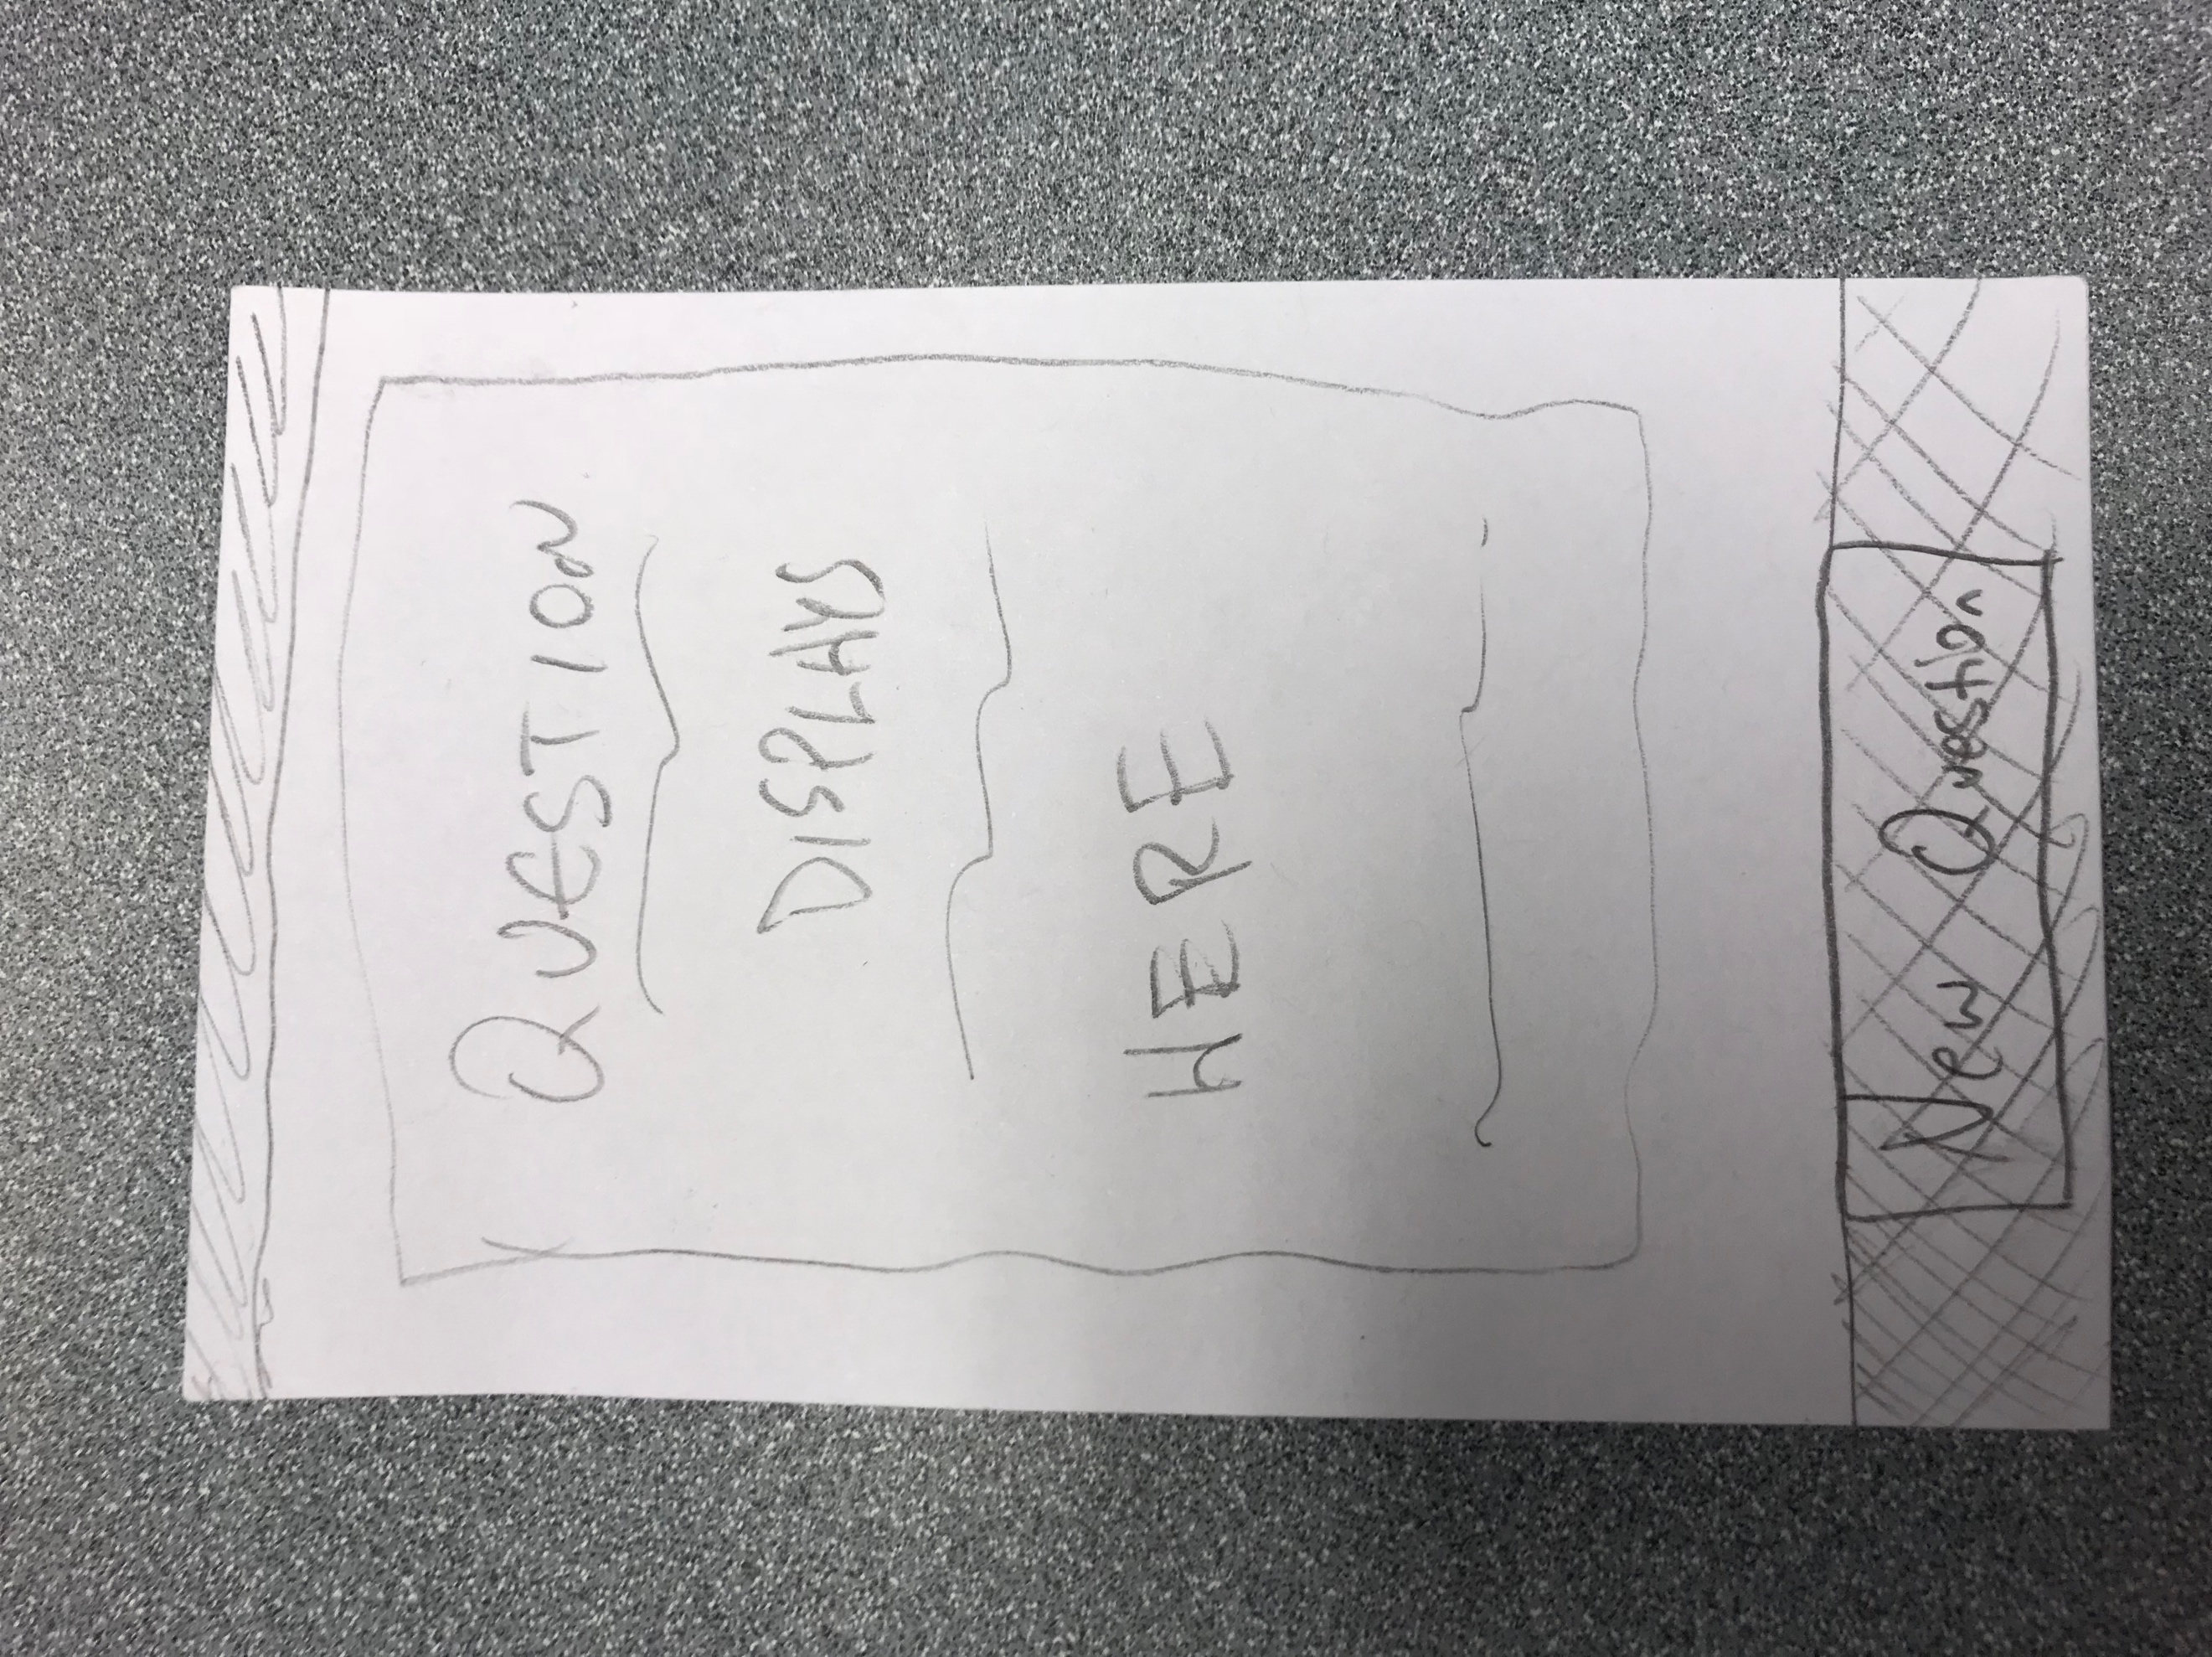 QUESTION
DISPLAYS
HERE
New Question